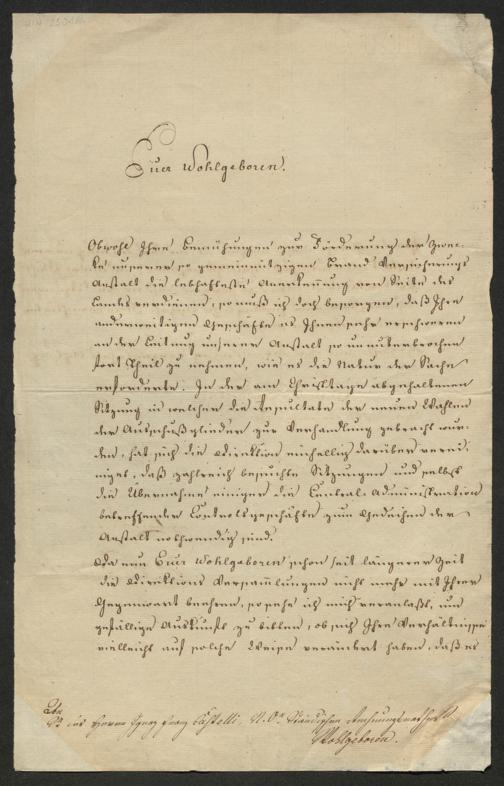 Euer Wohlgeboren.
Obwohl Ihre Bemühungen zur Förderung der Zwec-
ke unserer so gemeinnützigen Brand Versicherungs
Anstalt die lebhafteste Anerkennung von Seite des
Landes verdienen, so muß ich doch besorgen, daß Ihre
anderweitigen Geschäfte es Ihnen sehr erschweren
an der Leitung unserer Anstalt so ununterbrochen
fort Theil zu nehmen, wie es die Natur der Sache
erforderte. In der am Christtage abgehaltenen
Sitzung in welcher die Resultate der neuen Wahlen
der Ausschußglieder zur Verhandlung gebracht wur-
den, hat sich die Direktion einhellig darüber verei-
niget, daß zahlreich besuchte Sitzungen und selbst
die Übernahme einiger die Central-Administration
betreffender Controlsgeschäfte zum Gedeihen der
Anstalt nothwendig sind.
Da nun Euer Wohlgeboren schon seit längerer Zeit
die Direktions Versammlungen nicht mehr mit Ihrer
Gegenwart beehren, so sehe ich mich veranlaßt, um
gefällige Auskunft zu bitten, ob sich Ihre Verhältnisse
vielleicht auf solche Weise verändert haben, daß es
An
des Herrn Ignaz Franz Castelli, N. Oe. Ständischen
Wohlgeboren.